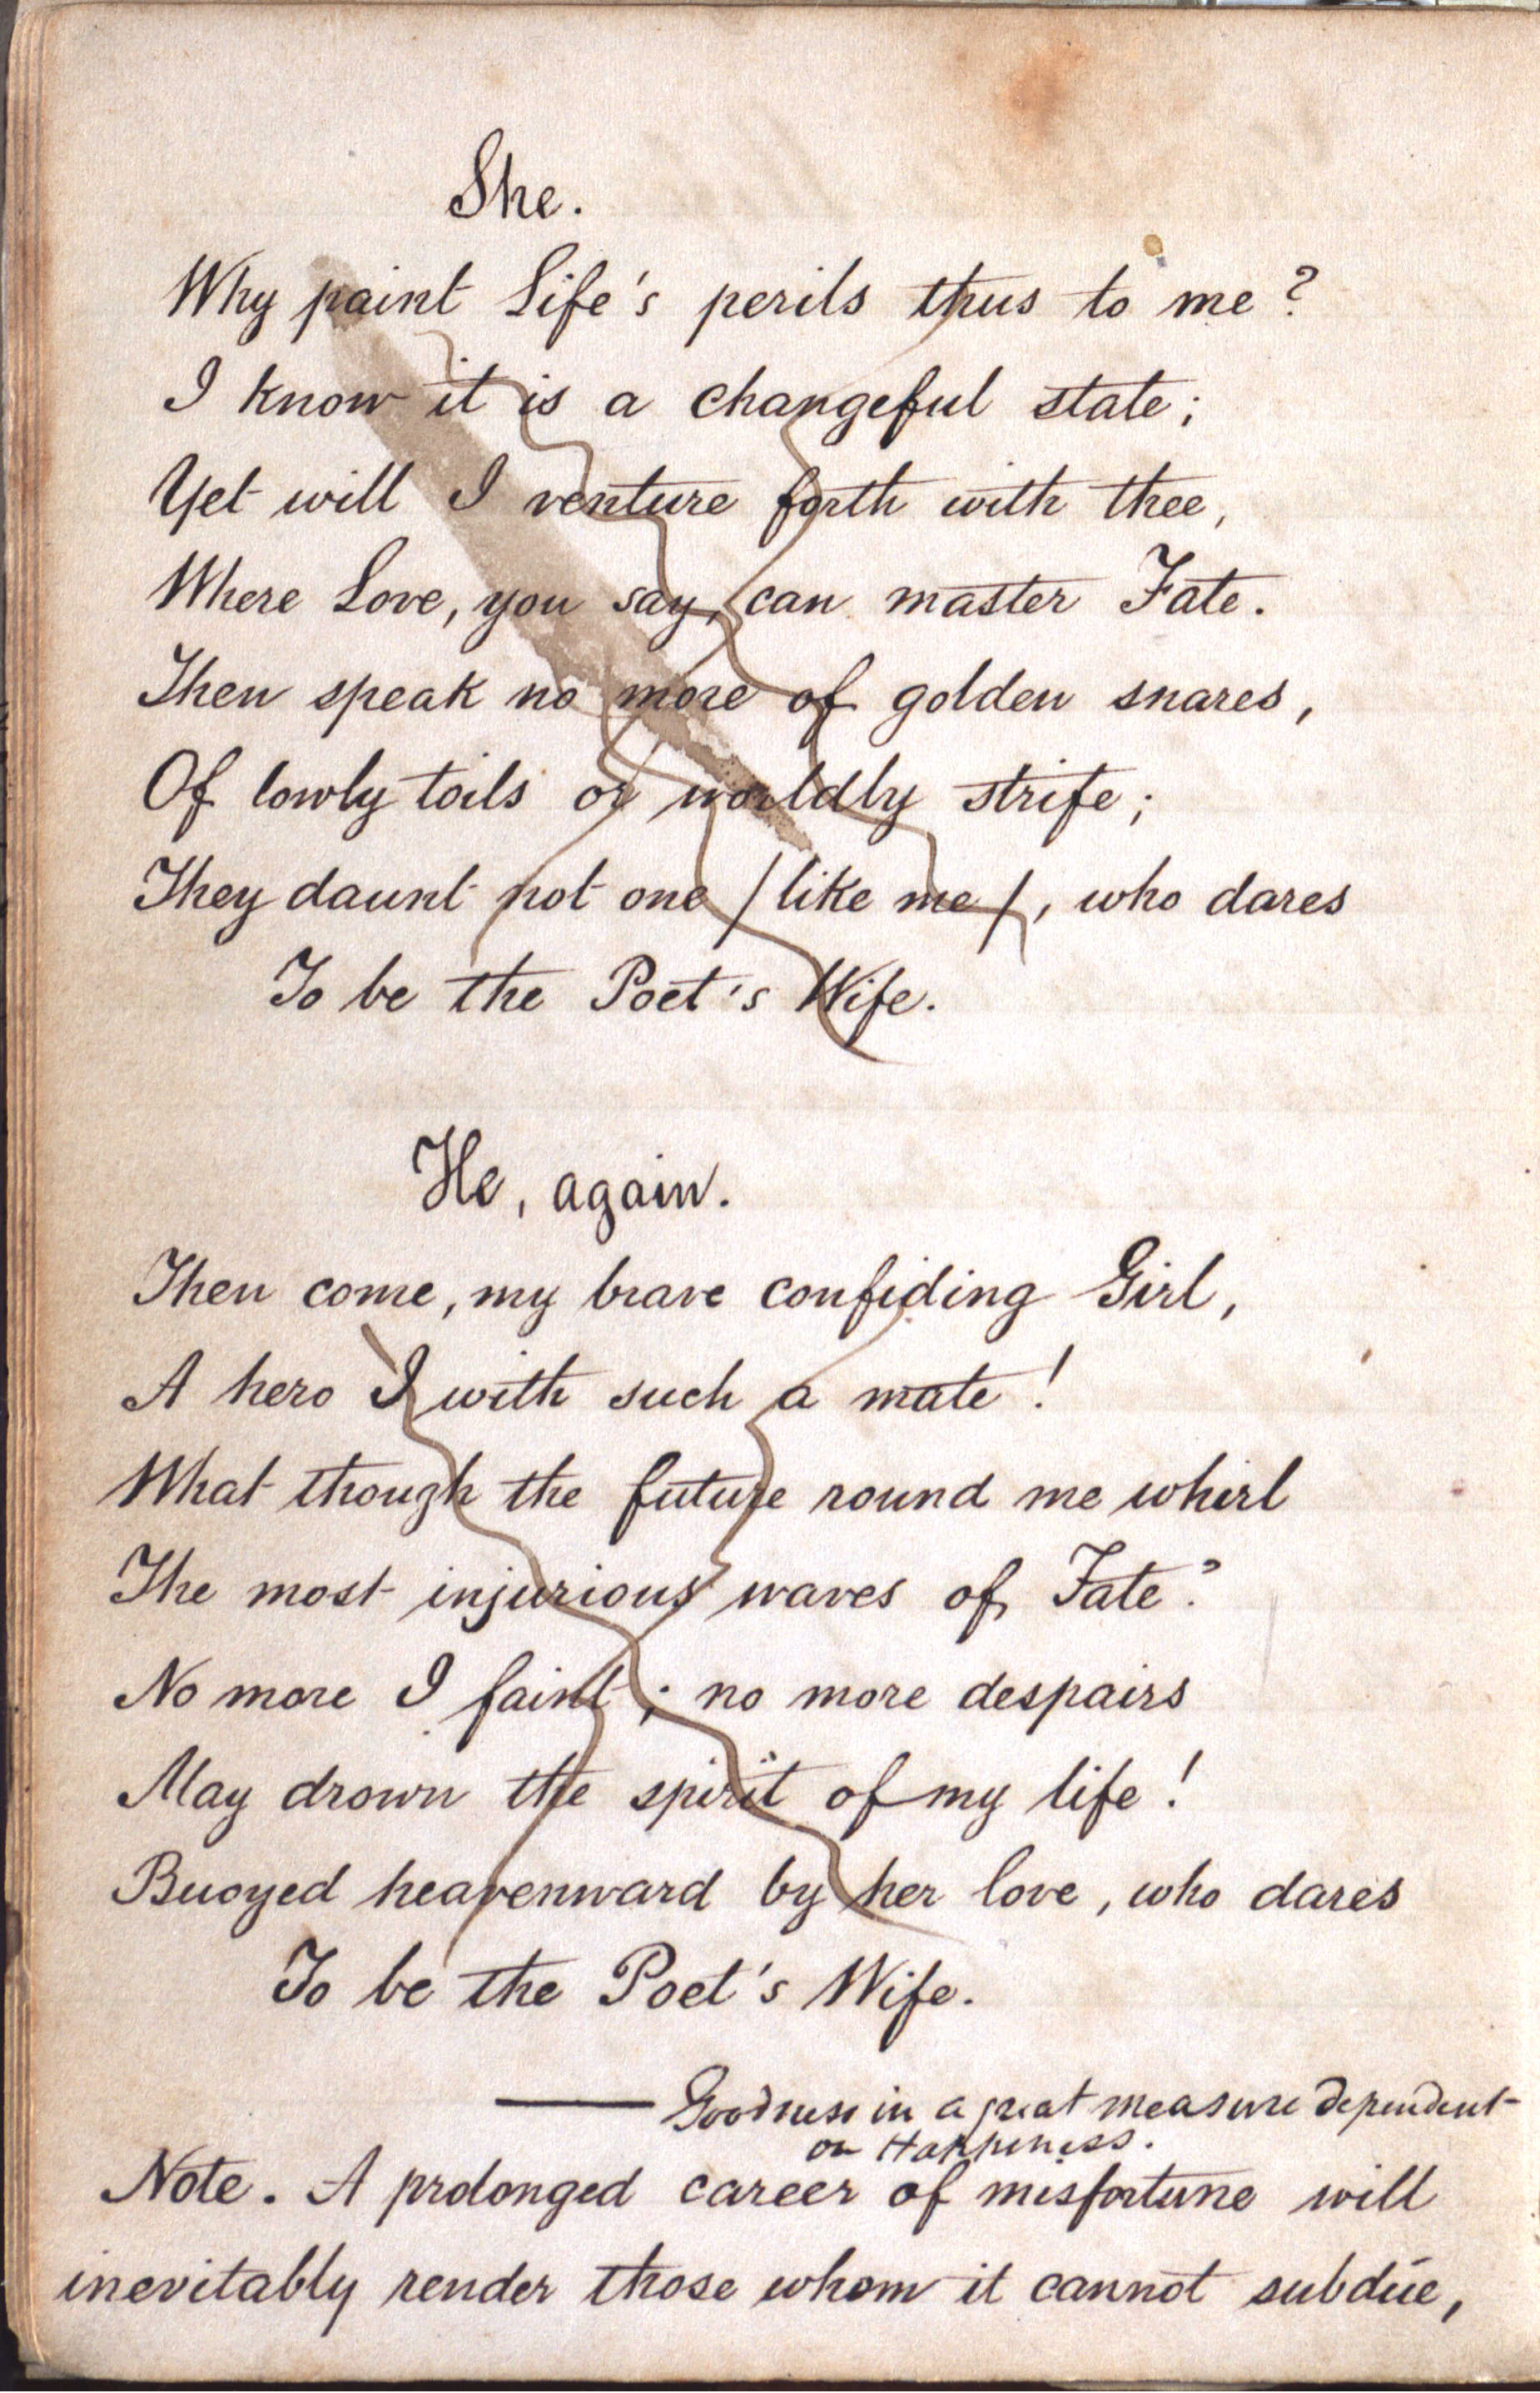 She.
Why paint Life's perils thus to me?
I know it is a changeful state;
Yet will I venture forth with thee,
Where Love, you say, can master Fate.
Then speak no more of golden snares,
Of lowly toils or worldly strife;
They daunt not one /like me/, who dares
To be the Poet's Wife.
He, again.
Then come, my brave confiding Girl,
A hero I with such a mate!
What though the future round me whirl
The most injurious waves of Fate?
No more I faint; no more despairs
May drown the spirit of my life!
Buoyed heavenward by her love, who dares
To be the Poet's Wife.
— Goodness in a great measure dependent
on Happiness.
Note. A prolonged career of misfortune will
inevitably render those whom it cannot subdue,